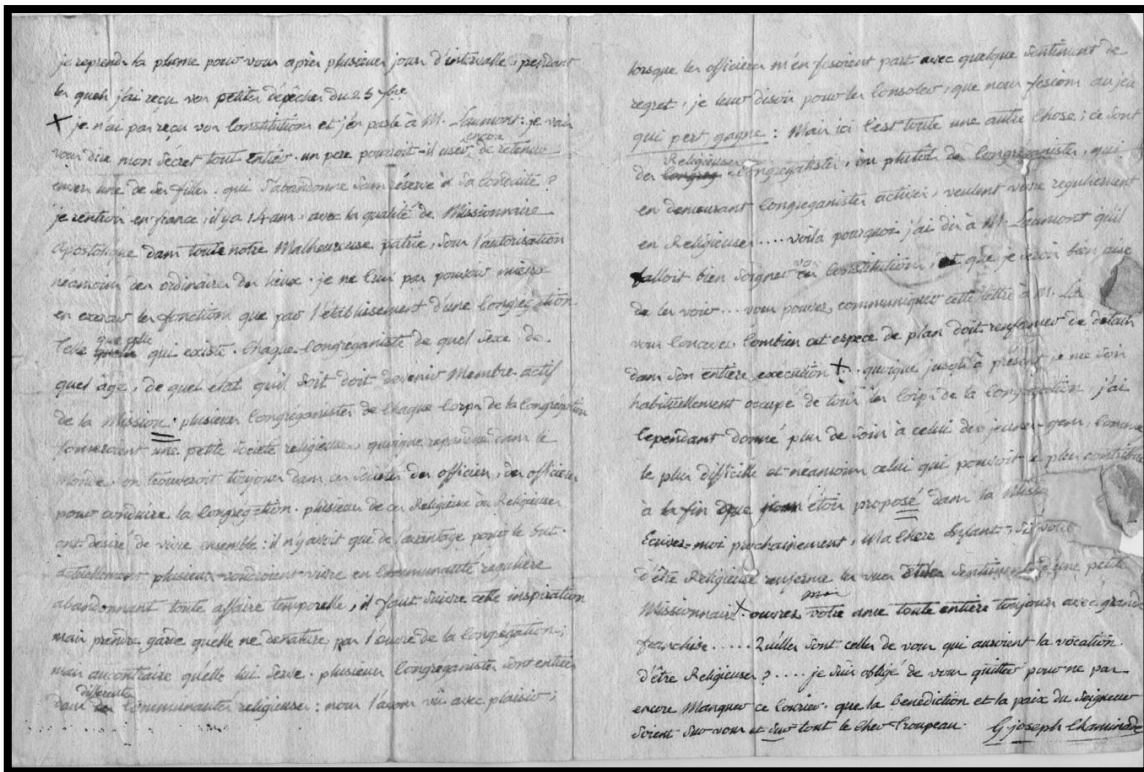 je reprends la plume pour vous après plusieurs jours d'intervalle, pendant
les quels j'ai reçu vos petites dépêches du 25 7bre
+ je n'ai pas reçu vos Constitutions et j'en parle à M. Laumont: je vais
vous dire mon secret tout entier. un pere pourroit-il user encore de retenue
envers une de ses filles, qui s'abandonne sans réserve à sa conduite?
je rentrois en france, il y a 14 ans, avec la qualité de Missionnaire
Apostolique dans toute notre Malheureuse patrie, sous l'autorisation
néamoins des ordinaires des lieux. je ne crus pas pouvoir mieux
en exercer les fonctions que par l'établissement d'une Congrégation
telle que celle qui existe. Chaque Congréganiste de quel sexe, de
quel âge, de quel etat qu'il soit doit devenir Membre actif
de la Mission: plusieurs Congréganistes de chaque Corps de la Congrégation
formeroient une petite société religieuse, quoique repandue dans le
Monde. on trouveroit toujours dans ces sociétés des officiers, des officieres
pour conduire la Congrégation. plusieurs de ces Religieux ou Religieuses
ont desiré de vivre ensemble: il n'y avoit que de l'avantage pour le but.
actuellement plusieurs voudroient vivre en Communauté reguliere
abandonnant toute affaire temporelle, il faut suivre cette inspiration
mais prendre garde quelle ne denature pas l'œuvre de la Congrégation;
mais aucontraire qu'elle lui serve. plusieurs Congréganistes sont entrées
dans differentes Communautés religieuses: nous l'avons vû avec plaisir;
lorsque les officieres m'en fesoient part avec quelque sentiment de
regret, je leur disois pour les consoler, que nous fesions au jeu
qui pert gagne: Mais ici c'est toute une autre chose; ce sont
des Religieuses Congréganistes, ou plutôt des Congréganistes, qui
en demeurant Congréganistes actives, veulent vivre regulierement
en Religieuses.... voila pourquoi j'ai dit à Mr. Laumont qu'il
falloit bien soigner vos Constitutions, et que je serois bien aise
de les voir... vous pouvez communiquer cette lettre à M. La
vous concevez combien cet espece de plan doit renfermer de détails
dans son entiere execution +. quoique jusqu'à présent je me sois
habituellement occupé de tous les corps de la congrégation, j'ai
cependant donné plus de soin à celui des jeunes gens, comme
le plus difficille et néamoins celui qui pouvoit le plus contribuer
à la fin que je m'étois proposé dans la Missi
Ecrivez-moi prochainement, Ma Chere Enfant,
d'être Religieuse renferme les vues et les sentiments d'une petite
Missionnaire + ouvrez moi votre ame toute entiere toujours avec grand
franchise..... Quélles sont celles de vous qui auroient la vocation
d'être Religieuses?.... je suis obligé de vous quitter pour ne pas
encore Manquer ce Courrier. que la bénédiction et la paix du Seigneur
soient sur vous et sur tout le cher Troupeau. G joseph Chaminade